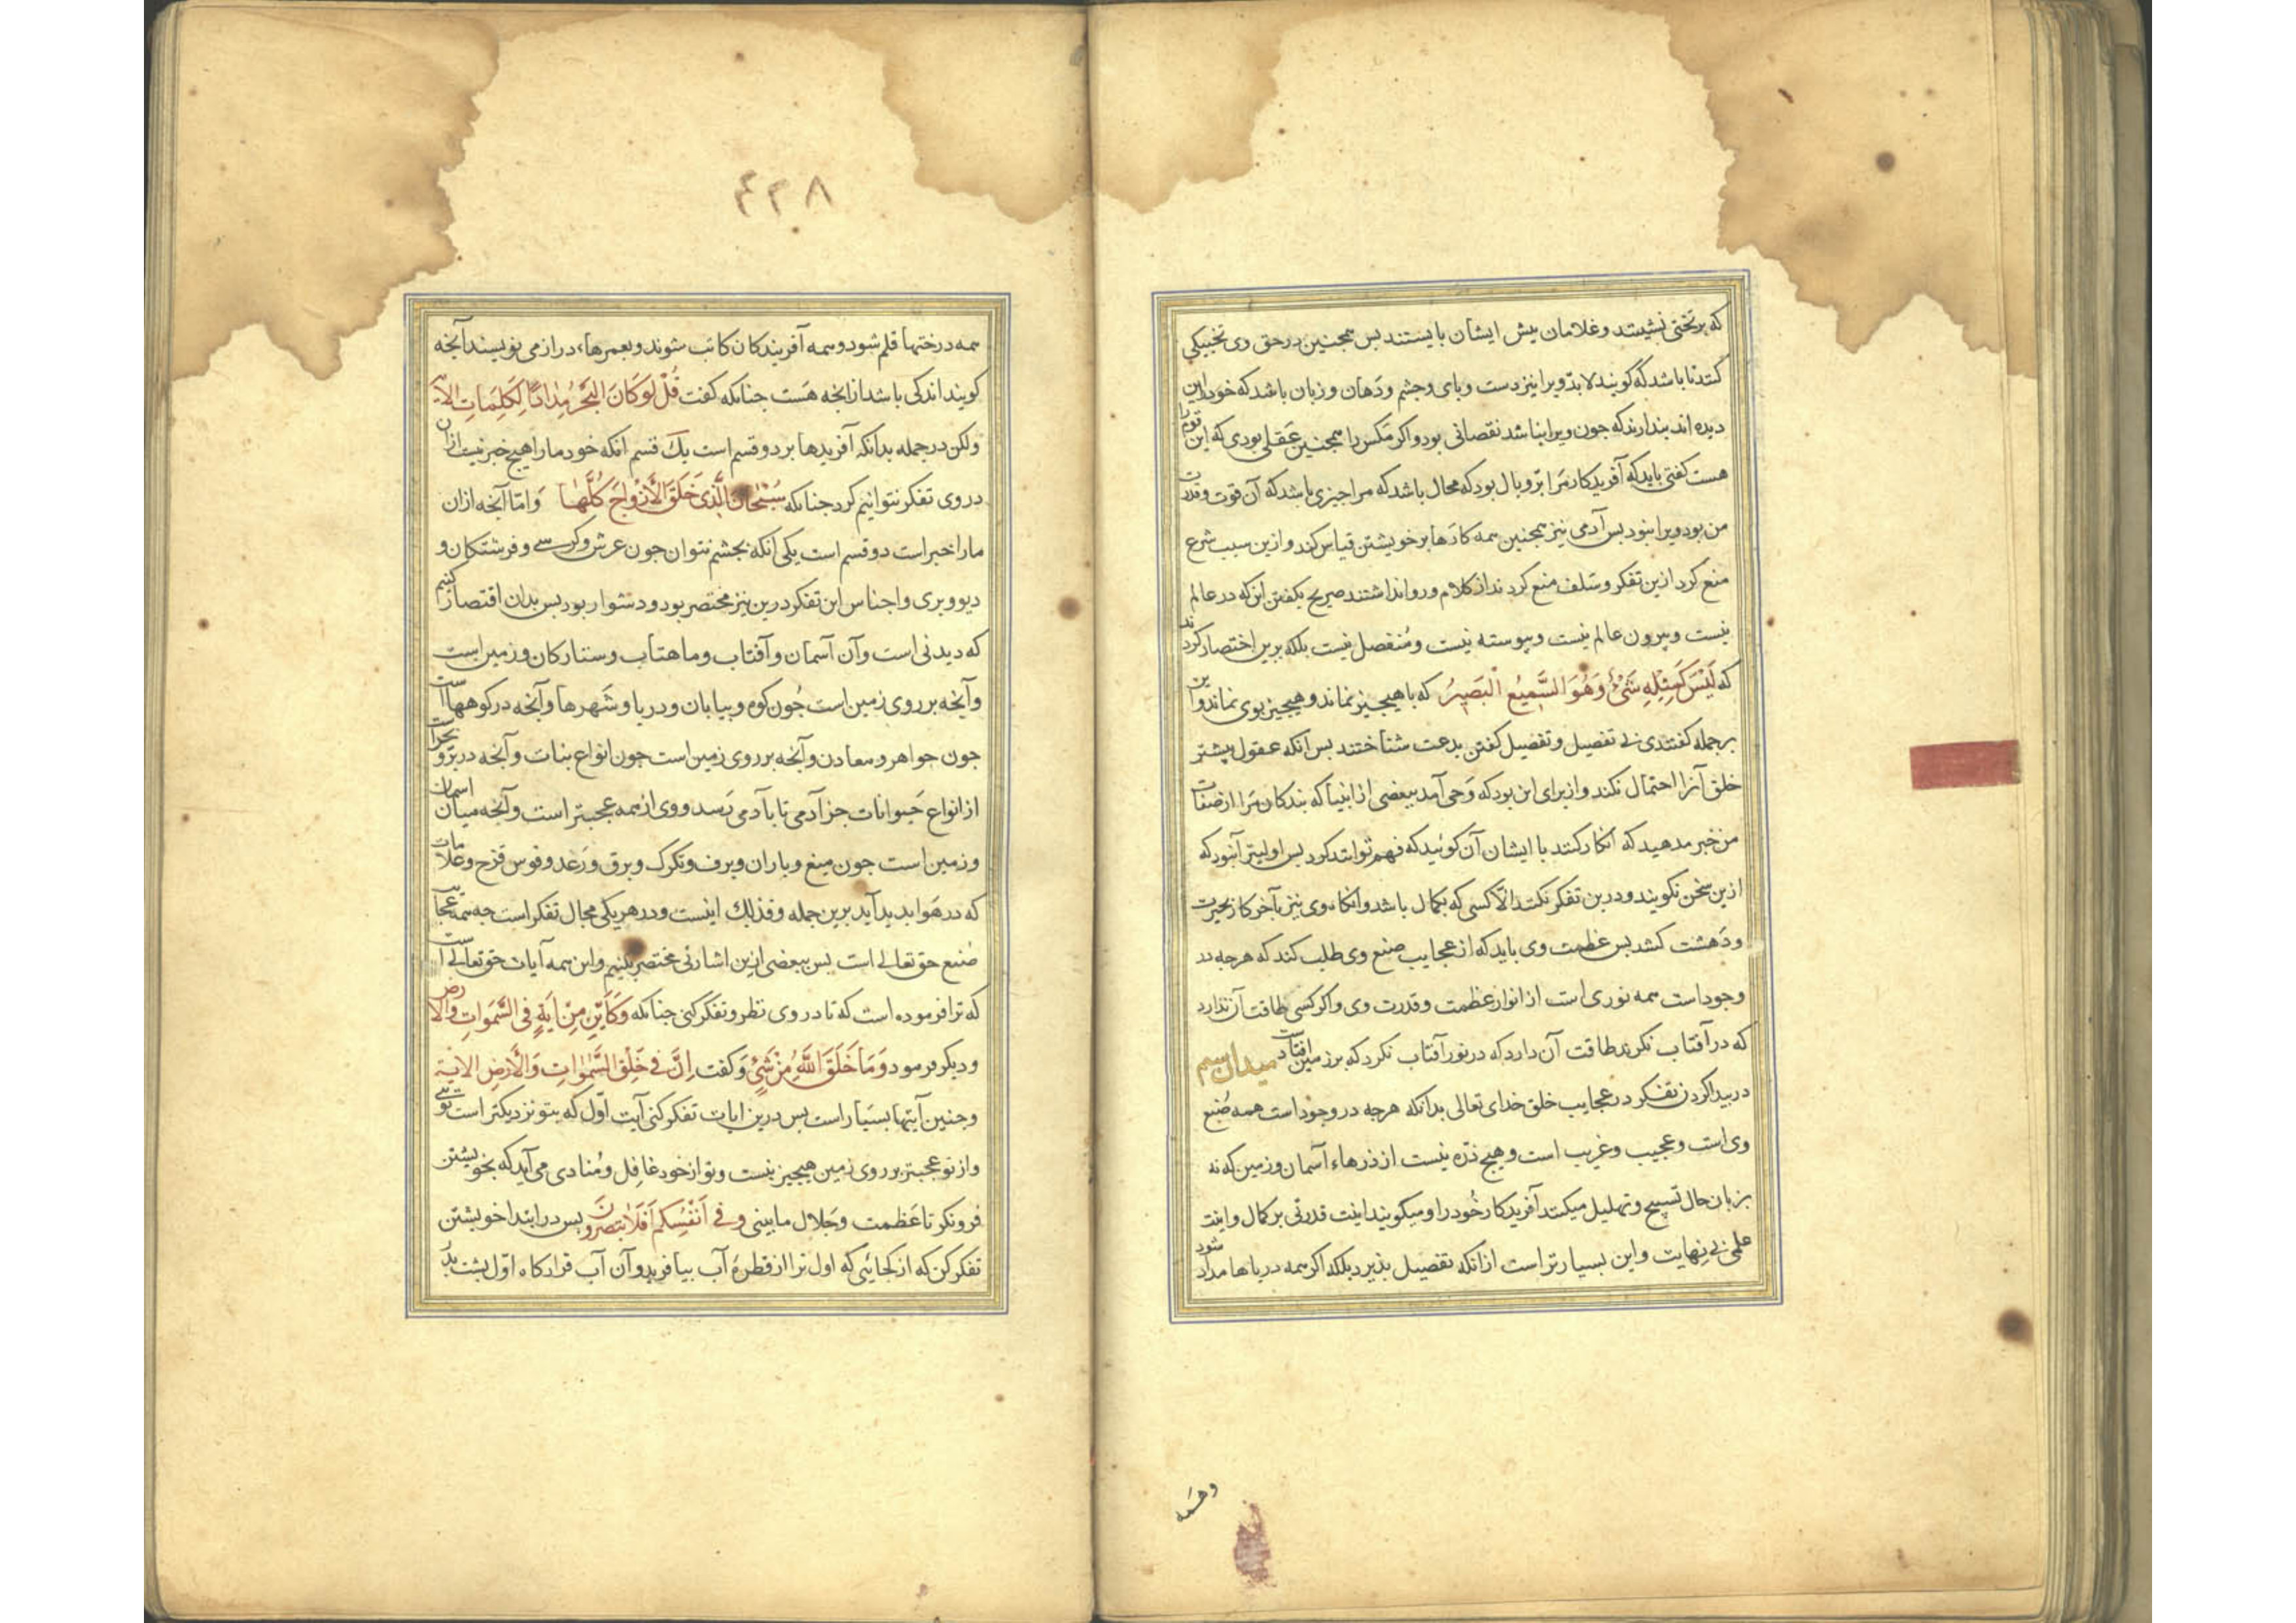 که بر تختی نشیند و غلامان پیش ایشان بایستند بس همجنین در حق وی تخییکی
کنند تا باشد که گویند لابد ویرا نیز دست و بای و جشم و دهان و زبان باشد که خود را این
دیده اند بندارند که جون ویرا نباشد نقصانی بود و اکر مکس را همجنین عقلی بودی که این قوم را
هست کفتی باید که آفریدکار مرا بر و بال بود که محال باشد که مرا جیزی باشد که آن قوت و قدرت
من بود ویرا نبود بس آدمی نیز همجنین همه کارها بر خویشتن قیاس کند و ازین سبب شرع
منع کرد ازین تفکر و سلف منع کردند از کلام و روا نداشتند صریح بکفتن این که در عالم
نیست و بیرون عالم نیست و بیوسته نیست و منفصل نیست بلکه برین اختصار کردند
که لَیْسَ کَمِثْلِهِ شَیْءٌ وَهُوَ السَّمِیعُ الْبَصِیرُ که با هیجیز نماند و هیجیز بوی نماند و این
بر جمله کفتندی بی تفصیل و تفصیل کفتن بدعت شناختند بس انکه عقول بیشتر
خلق آنرا احتمال نکند و از برای این بود که وحی آمد ببعضی از انبیا که بندکان مرا از صفات
من خبر مدهید که انکار کنند با ایشان آن کوئید که فهم توانند کرد بس اولیتر آنبود که
ازین سخن نکویند و درین تفکر نکنند الا کسی که بکمال باشد و انکاه وی نیز بآخر کار بحیرت
و دهشت کشد بس عظمت وی باید که از عجایب صنع وی طلب کند که هرجه در
وجود است همه نوری است از انوار عظمت و قدرت وی و اکر کسی طاقت آن ندارد
که در آفتاب نکرند طاقت آن دارد که در نور آفتاب نکرد که بر زمین افتاد است میدان سیم
در بیدا کردن تفکر در عجایب خلق خدای تعالی بدانکه هرجه در وجود است همه صنع
وی است و عجیب و غریب است و هیج ذره نیست از ذرهاء آسمان و زمین که نه
بزبان حال تسبیح و تهلیل میکند آفریدکار خود را و میکویند اینت قدرتی بر کمال و اینت
علمی بی نهایت و این بسیارتر است ازانکه تفصیل بذیرد بلکه اکر همه دریاها مداد شود
و همه
۴۳۸
همه درختها قلم شود و همه آفریندکان کاتب شوند و بعمرهاء دراز می نویسند آنجه
کویند اندکی باشد از انجه هست جنانکه کفت قُلْ لَوْ کَانَ الْبَحْرُ مِدَادًا لِکَلِمَاتِ الآیه
ولکن در جمله بدانکه آفریدها بر دو قسم است یک قسم انکه خود ما را هیج خبر نیست ازان
در وی تفکر نتوانیم کرد جنانکه سُبْحَانَ الَّذِی خَلَقَ الْأَزْوَاجَ کُلَّهَا و اما آنجه ازان
ما را خبر است دو قسم است یکی آنکه بجشم نتوان جون عرش و کرسی و فرشتکان و
دیو و بری و اجناس این تفکر درین نیز مختصر بود و دشوار بود بس بدان اقتصار کنیم
که دیدنی است و آن آسمان و آفتاب و ماهتاب و ستارکان و زمین است
و آنجه بر روی زمین است جون کوه و بیابان و دریا و شهرها و آنجه در کوههاست
جون جواهر و معادن و آنجه بر روی زمین است جون انواع نبات و آنجه در بر و بحر است
از انواع حیوانات جز آدمی تا بآدمی رسد و وی از همه عجبتر است و آنجه میان آسمان
و زمین است جون میغ و باران و برف و تکرک و برق و رعد و قوس قزح و علامات
که در هوا بدید آید برین جمله و فذلک اینست و در هر یکی مجال تفکر است جه همه عجایب
صنع حق تعالی است بس ببعضی ازین اشارتی مختصر بکنیم و این همه آیات حق تعالی است
که ترا فرموده است که تا در وی نظر و تفکر کنی جنانکه وَکَأَیِّنْ مِنْ آیَةٍ فِی السَّمَوَاتِ وَالْأَرْضِ
و دیکر فرمود وَمَا خَلَقَ اللَّهُ مِنْ شَیْءٍ و کفت إِنَّ فِی خَلْقِ السَّمَوَاتِ وَالْأَرْضِ الآیة
و جنین آیتها بسیار است بس درین ایات تفکر کنی آیت اول که بتو نزدیکتر است توئی
و از تو عجبتر بر روی زمین هیجیز نیست و تو از خود غافل و منادی می آید که بخویشتن
فرو نکر تا عظمت و جلال ما بینی وَفِی أَنْفُسِکُمْ أَفَلَا تُبْصِرُونَ بس در ابتدا خویشتن
تفکر کن که از کجائی که اول ترا از قطرهٔ آب بیافرید و آن آب قرارکاه اول بشت بدر